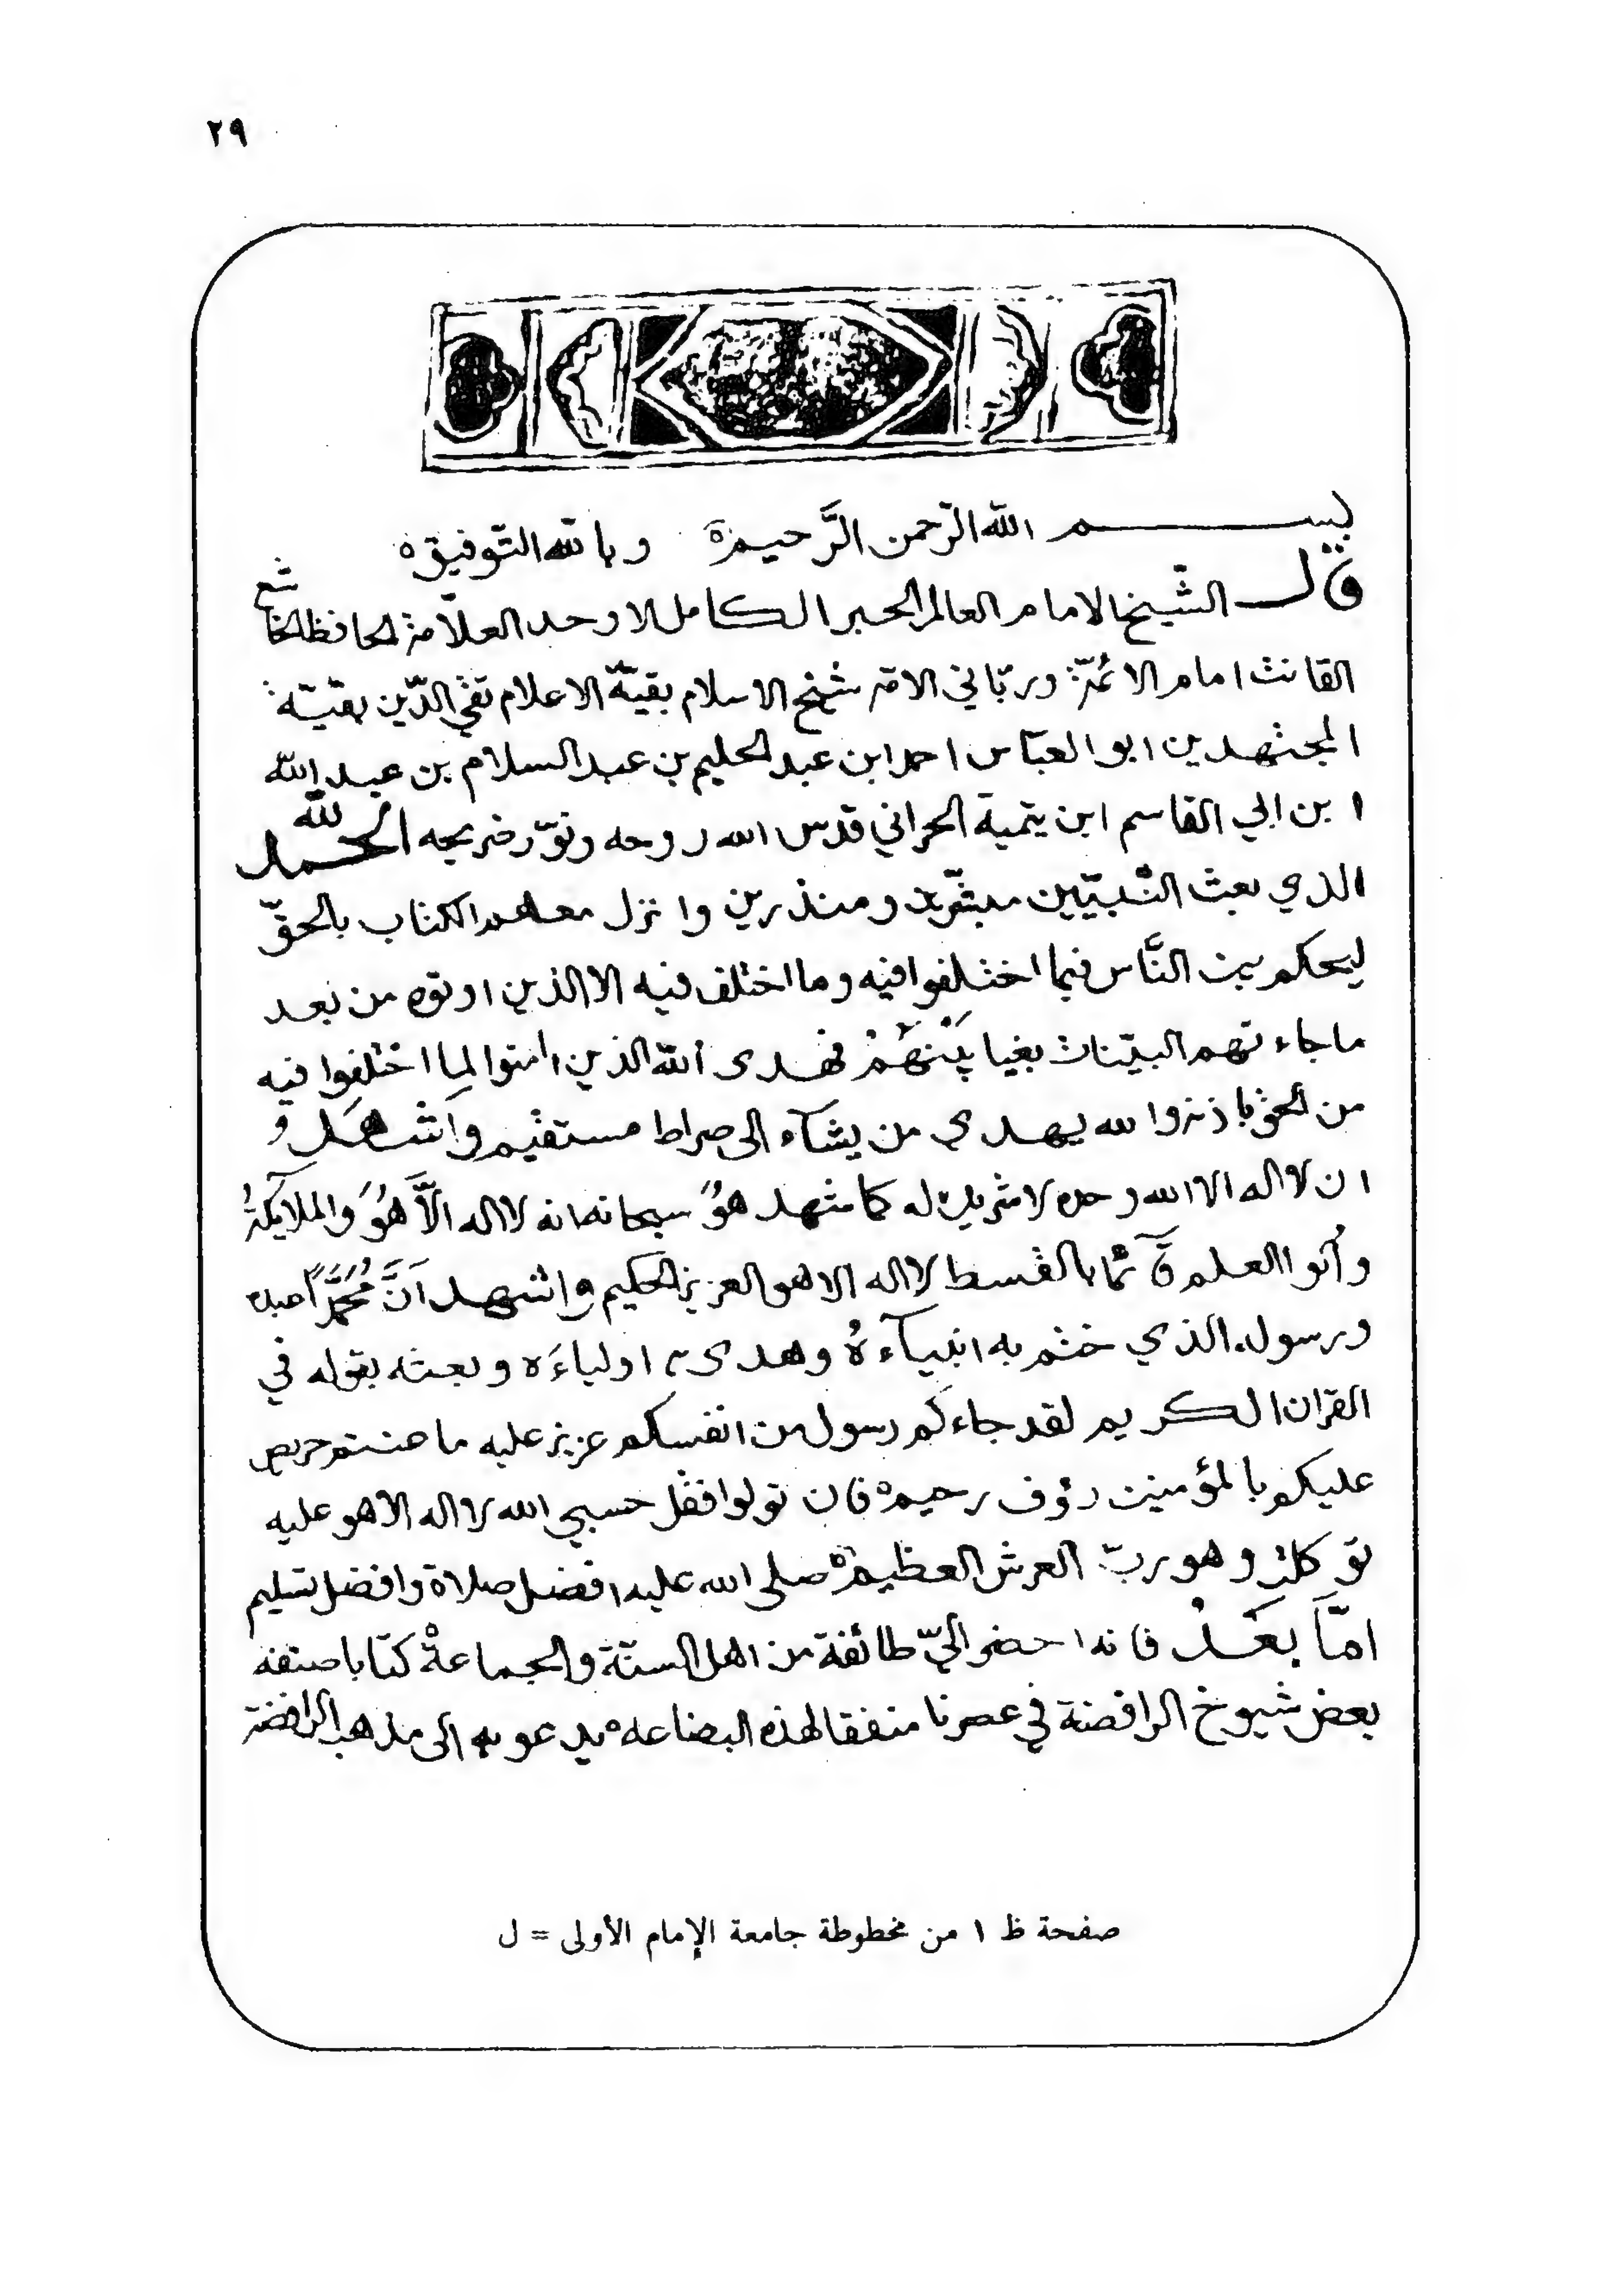 ٢٩
بسم الله الرّحمن الرَّحيم وبالله التّوفيق
قال الشّيخ الامام العالم الحبر الكامل الاوحد العلاّمة الحافظ الخاشع
القانت امام الائمّة وربّاني الامّة شيخ الاسلام بقيّة الاعلام تقي الدّين بقيّة
المجتهدين ابو العبّاس احمد ابن عبد الحليم بن عبد السلام بن عبد الله
ابن ابي القاسم ابن تيمية الحراني قدس الله روحه ونوّر ضريحه الحمد لله
الذي بعث النّبيّين مبشّرين ومنذرين وانزل معهم الكتاب بالحقّ
ليحكم بين النَّاس فيما اختلفوا فيه وما اختلف فيه الا الذين اوتوه من بعد
ما جاءتهم البيّنات بغيا بَيْنَهُمْ فهدى الله الذين امنوا لِما اختلفوا فيه
من الحق باذنه والله يهدي من يشآء الى صراط مستقيم واَشهَدُ
ان لا اله الا الله وحده لا شريك له كما شهد هوُ سبحانه انه لا اله الاَّ هُوَ والملايكةُ
وأُلوا العلم قآئما بالقسط لا اله الا هو العزيز الحكيم واشهد اَنَّ مُحَمَّداً عبده
ورسوله الذي ختم به انبيآءهُ وهدى به اولياءَه وبعثه بقوله في
القران الكريم لقد جاءكم رسول من انفسكم عزيز عليه ما عنتم حريص
عليكم بالمؤمنين رؤف رحيم فان تولوا فقل حسبي الله لا اله الا هو عليه
توكلت وهو ربّ العرش العظيم صلى الله عليه افضل صلاة وافضل تسليم
امّا بَعْدُ فانه احضر اليّ طائفة من اهل السنّة والجماعة كتابا صنفه
بعض شيوخ الرافضة في عصرنا منفقا لهذه البضاعه يدعو به الى مذهب الرافضة
صفحة ظ ١ من مخطوطة جامعة الإمام الأولى = ل